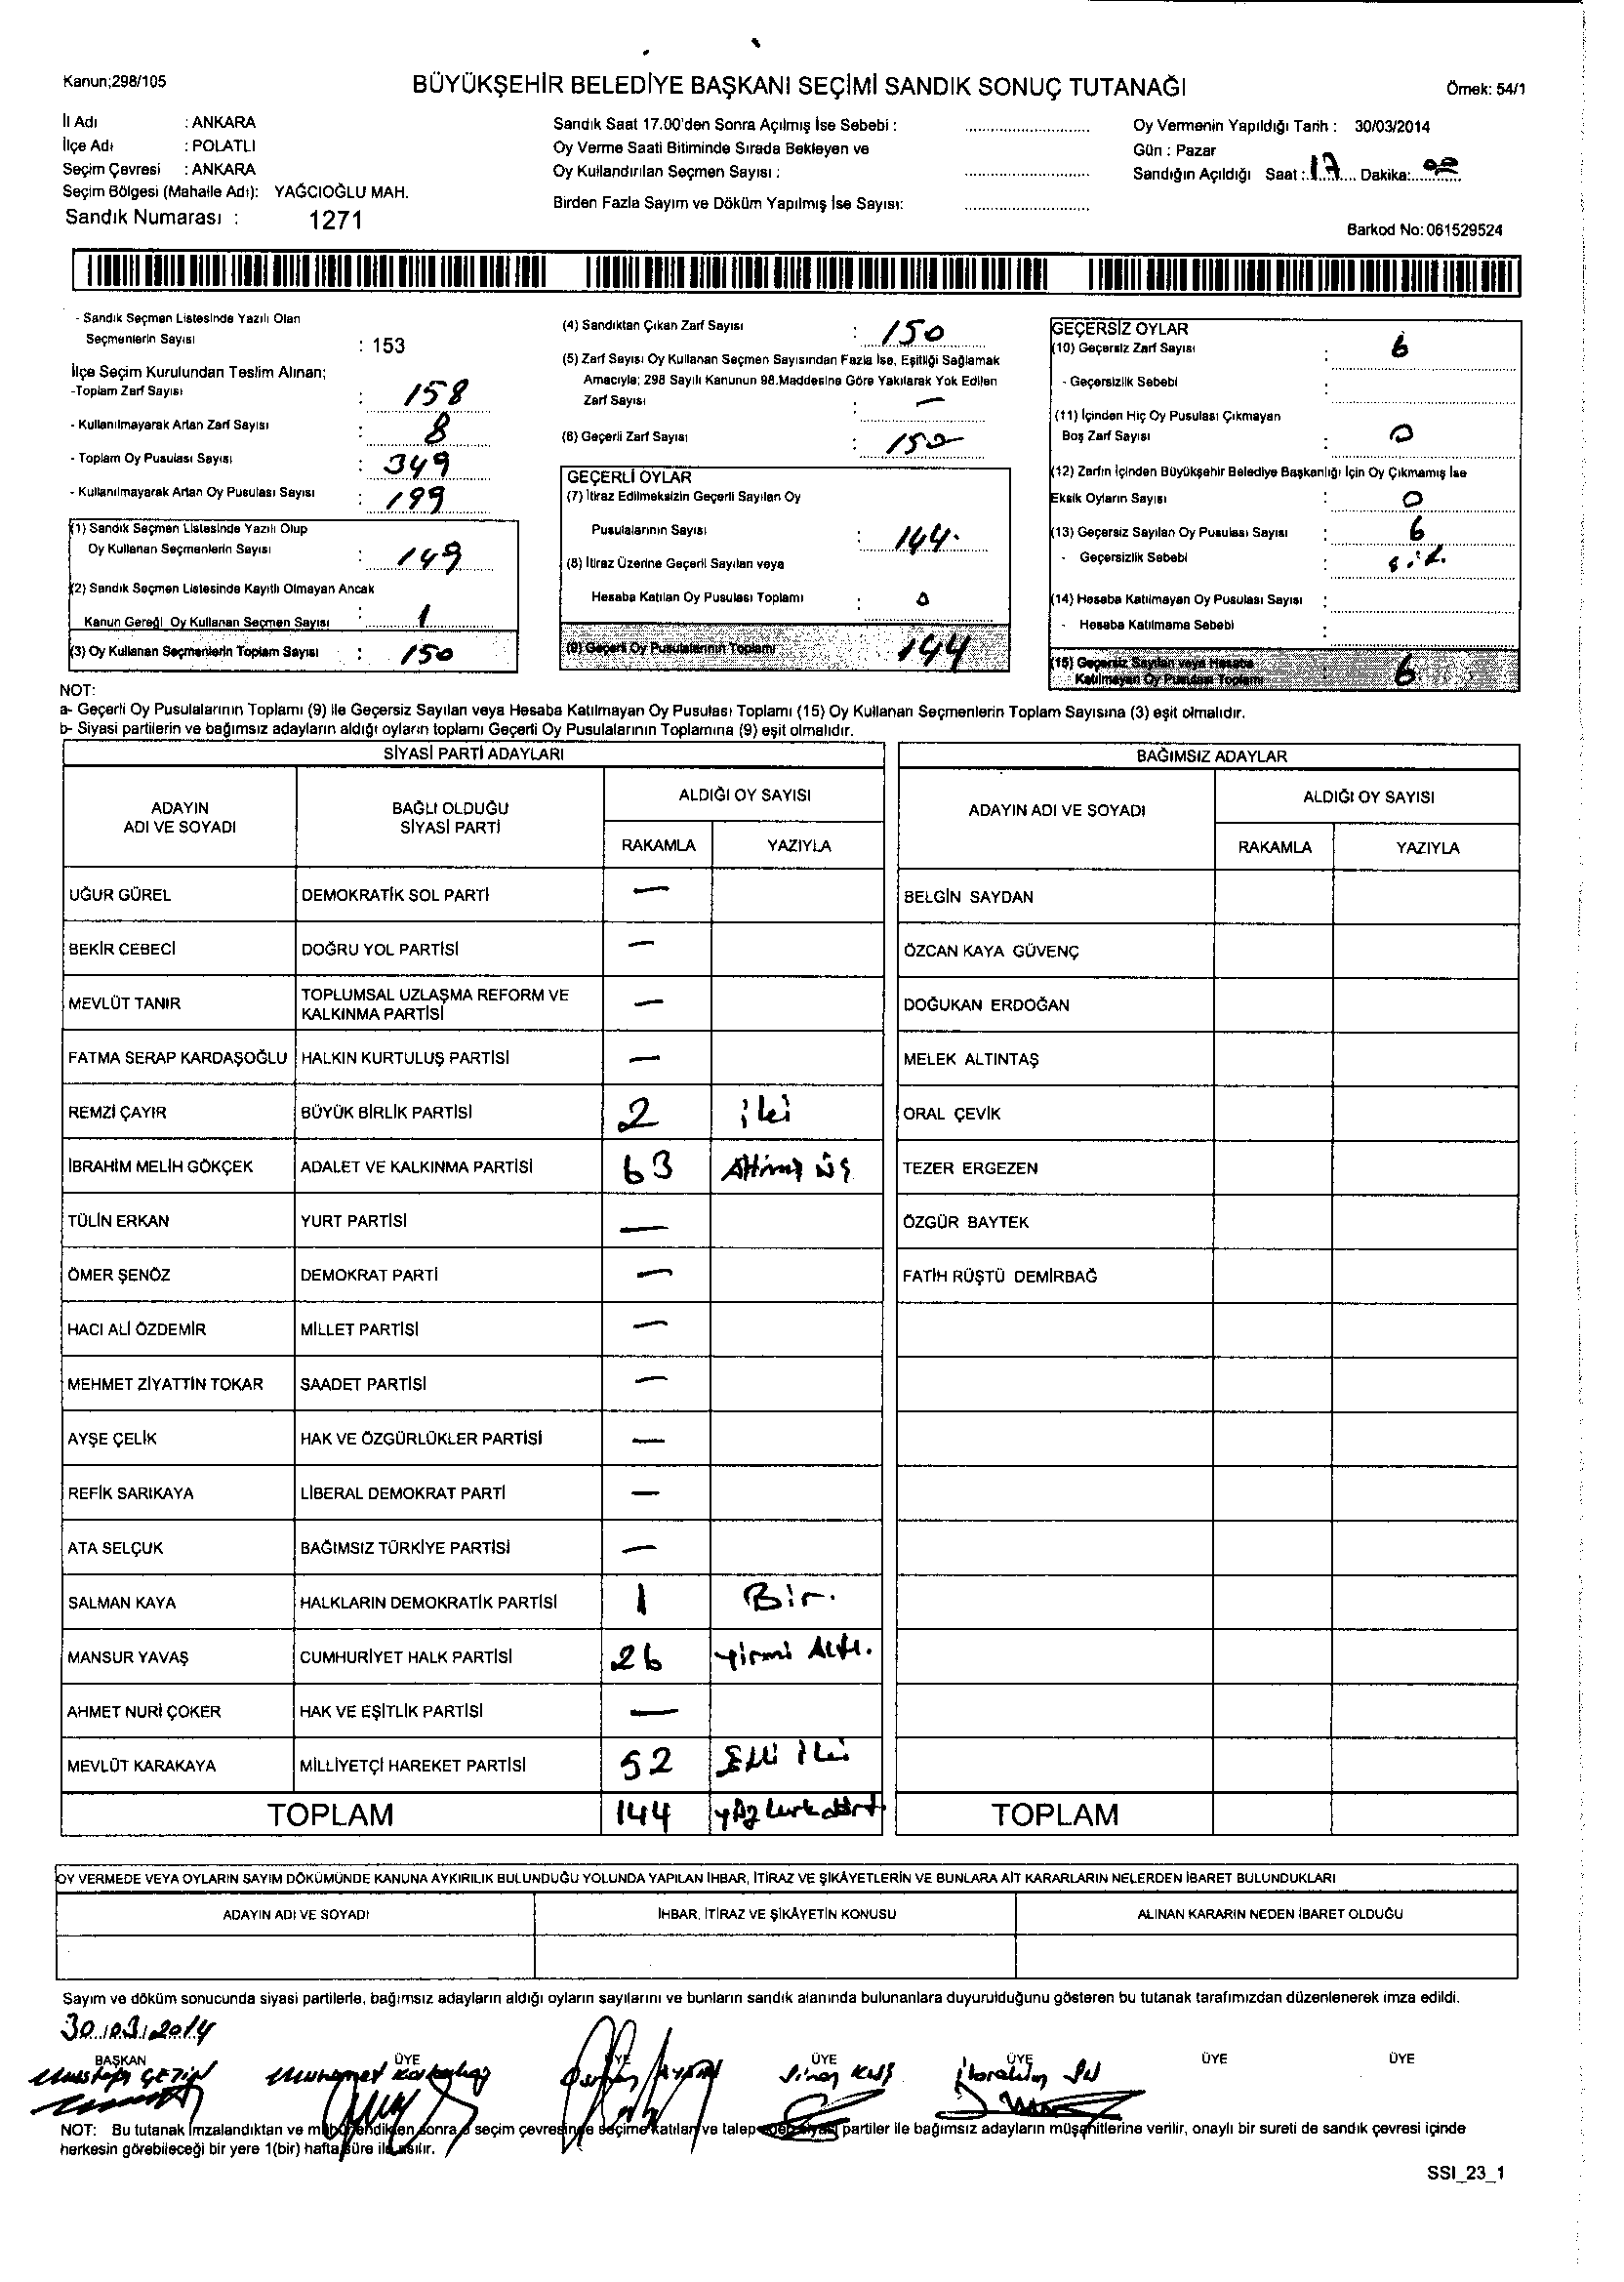 Kanun;298/105
BÜYÜKŞEHİR BELEDİYE BAŞKANI SEÇİMİ SANDIK SONUÇ TUTANAĞI
Örnek: 54/1
İl Adı : ANKARA
İlçe Adı : POLATLI
Seçim Çevresi : ANKARA
Seçim Bölgesi (Mahalle Adı): YAĞCIOĞLU MAH.
Sandık Numarası : 1271
Sandık Saat 17.00'den Sonra Açılmış İse Sebebi :
Oy Verme Saati Bitiminde Sırada Bekleyen ve
Oy Kullandırılan Seçmen Sayısı :
Birden Fazla Sayım ve Döküm Yapılmış İse Sayısı:
Oy Vermenin Yapıldığı Tarih : 30/03/2014
Gün : Pazar
Sandığın Açıldığı Saat : 17 Dakika: 00
Barkod No: 061529524
- Sandık Seçmen Listesinde Yazılı Olan
Seçmenlerin Sayısı : 153
İlçe Seçim Kurulundan Teslim Alınan;
-Toplam Zarf Sayısı : 158
- Kullanılmayarak Artan Zarf Sayısı : 8
- Toplam Oy Pusulası Sayısı : 349
- Kullanılmayarak Artan Oy Pusulası Sayısı : 199
(1) Sandık Seçmen Listesinde Yazılı Olup
Oy Kullanan Seçmenlerin Sayısı : 149
(2) Sandık Seçmen Listesinde Kayıtlı Olmayan Ancak
Kanun Gereği Oy Kullanan Seçmen Sayısı : 1
(3) Oy Kullanan Seçmenlerin Toplam Sayısı : 150
(4) Sandıktan Çıkan Zarf Sayısı : 150
(5) Zarf Sayısı Oy Kullanan Seçmen Sayısından Fazla İse, Eşitliği Sağlamak
Amacıyla; 298 Sayılı Kanunun 98.Maddesine Göre Yakılarak Yok Edilen
Zarf Sayısı : —
(6) Geçerli Zarf Sayısı : 150
GEÇERLİ OYLAR
(7) İtiraz Edilmeksizin Geçerli Sayılan Oy
Pusulalarının Sayısı : 144.
(8) İtiraz Üzerine Geçerli Sayılan veya
Hesaba Katılan Oy Pusulası Toplamı : 0
(9) Geçerli Oy Pusulalarının Toplamı : 144
GEÇERSİZ OYLAR
(10) Geçersiz Zarf Sayısı : 6
- Geçersizlik Sebebi :
(11) İçinden Hiç Oy Pusulası Çıkmayan
Boş Zarf Sayısı : 0
(12) Zarfın İçinden Büyükşehir Belediye Başkanlığı İçin Oy Çıkmamış İse
Eksik Oyların Sayısı : 0
(13) Geçersiz Sayılan Oy Pusulası Sayısı : 6
- Geçersizlik Sebebi :
(14) Hesaba Katılmayan Oy Pusulası Sayısı :
- Hesaba Katılmama Sebebi :
(15) Geçersiz Sayılan veya Hesaba
Katılmayan Oy Pusulası Toplamı : 6
NOT:
a- Geçerli Oy Pusulalarının Toplamı (9) ile Geçersiz Sayılan veya Hesaba Katılmayan Oy Pusulası Toplamı (15) Oy Kullanan Seçmenlerin Toplam Sayısına (3) eşit olmalıdır.
b- Siyasi partilerin ve bağımsız adayların aldığı oyların toplamı Geçerli Oy Pusulalarının Toplamına (9) eşit olmalıdır.
SİYASİ PARTİ ADAYLARI
ADAYIN ADI VE SOYADI BAĞLI OLDUĞU SİYASİ PARTİ ALDIĞI OY SAYISI
RAKAMLA YAZIYLA
UĞUR GÜREL DEMOKRATİK SOL PARTİ —
BEKİR CEBECİ DOĞRU YOL PARTİSİ —
MEVLÜT TANIR TOPLUMSAL UZLAŞMA REFORM VE KALKINMA PARTİSİ —
FATMA SERAP KARDAŞOĞLU HALKIN KURTULUŞ PARTİSİ —
REMZİ ÇAYIR BÜYÜK BİRLİK PARTİSİ 2 iki
İBRAHİM MELİH GÖKÇEK ADALET VE KALKINMA PARTİSİ 63 Altmış üç
TÜLİN ERKAN YURT PARTİSİ —
ÖMER ŞENÖZ DEMOKRAT PARTİ —
HACI ALİ ÖZDEMİR MİLLET PARTİSİ —
MEHMET ZİYATTİN TOKAR SAADET PARTİSİ —
AYŞE ÇELİK HAK VE ÖZGÜRLÜKLER PARTİSİ —
REFİK SARIKAYA LİBERAL DEMOKRAT PARTİ —
ATA SELÇUK BAĞIMSIZ TÜRKİYE PARTİSİ —
SALMAN KAYA HALKLARIN DEMOKRATİK PARTİSİ 1 Bir.
MANSUR YAVAŞ CUMHURİYET HALK PARTİSİ 26 Yirmi Altı.
AHMET NURİ ÇOKER HAK VE EŞİTLİK PARTİSİ —
MEVLÜT KARAKAYA MİLLİYETÇİ HAREKET PARTİSİ 52 Elli iki
TOPLAM 144 yüz kırk dört
BAĞIMSIZ ADAYLAR
ADAYIN ADI VE SOYADI ALDIĞI OY SAYISI
RAKAMLA YAZIYLA
BELGİN SAYDAN
ÖZCAN KAYA GÜVENÇ
DOĞUKAN ERDOĞAN
MELEK ALTINTAŞ
ORAL ÇEVİK
TEZER ERGEZEN
ÖZGÜR BAYTEK
FATİH RÜŞTÜ DEMİRBAĞ
TOPLAM
OY VERMEDE VEYA OYLARIN SAYIM DÖKÜMÜNDE KANUNA AYKIRILIK BULUNDUĞU YOLUNDA YAPILAN İHBAR, İTİRAZ VE ŞİKÂYETLERİN VE BUNLARA AİT KARARLARIN NELERDEN İBARET BULUNDUKLARI
ADAYIN ADI VE SOYADI İHBAR, İTİRAZ VE ŞİKÂYETİN KONUSU ALINAN KARARIN NEDEN İBARET OLDUĞU
Sayım ve döküm sonucunda siyasi partilerle, bağımsız adayların aldığı oyların sayılarını ve bunların sandık alanında bulunanlara duyurulduğunu gösteren bu tutanak tarafımızdan düzenlenerek imza edildi.
30.03.2014
BAŞKAN ÜYE ÜYE ÜYE ÜYE ÜYE ÜYE
Mustafa Sinan Kuş İbrahim
NOT: Bu tutanak İmzalandıktan ve mühürlendikten sonra seçim çevresinde seçime katılan ve talep eden siyasi partiler ile bağımsız adayların müşahitlerine verilir, onaylı bir sureti de sandık çevresi içinde
herkesin görebileceği bir yere 1(bir) hafta süre ile asılır.
SSI_23_1